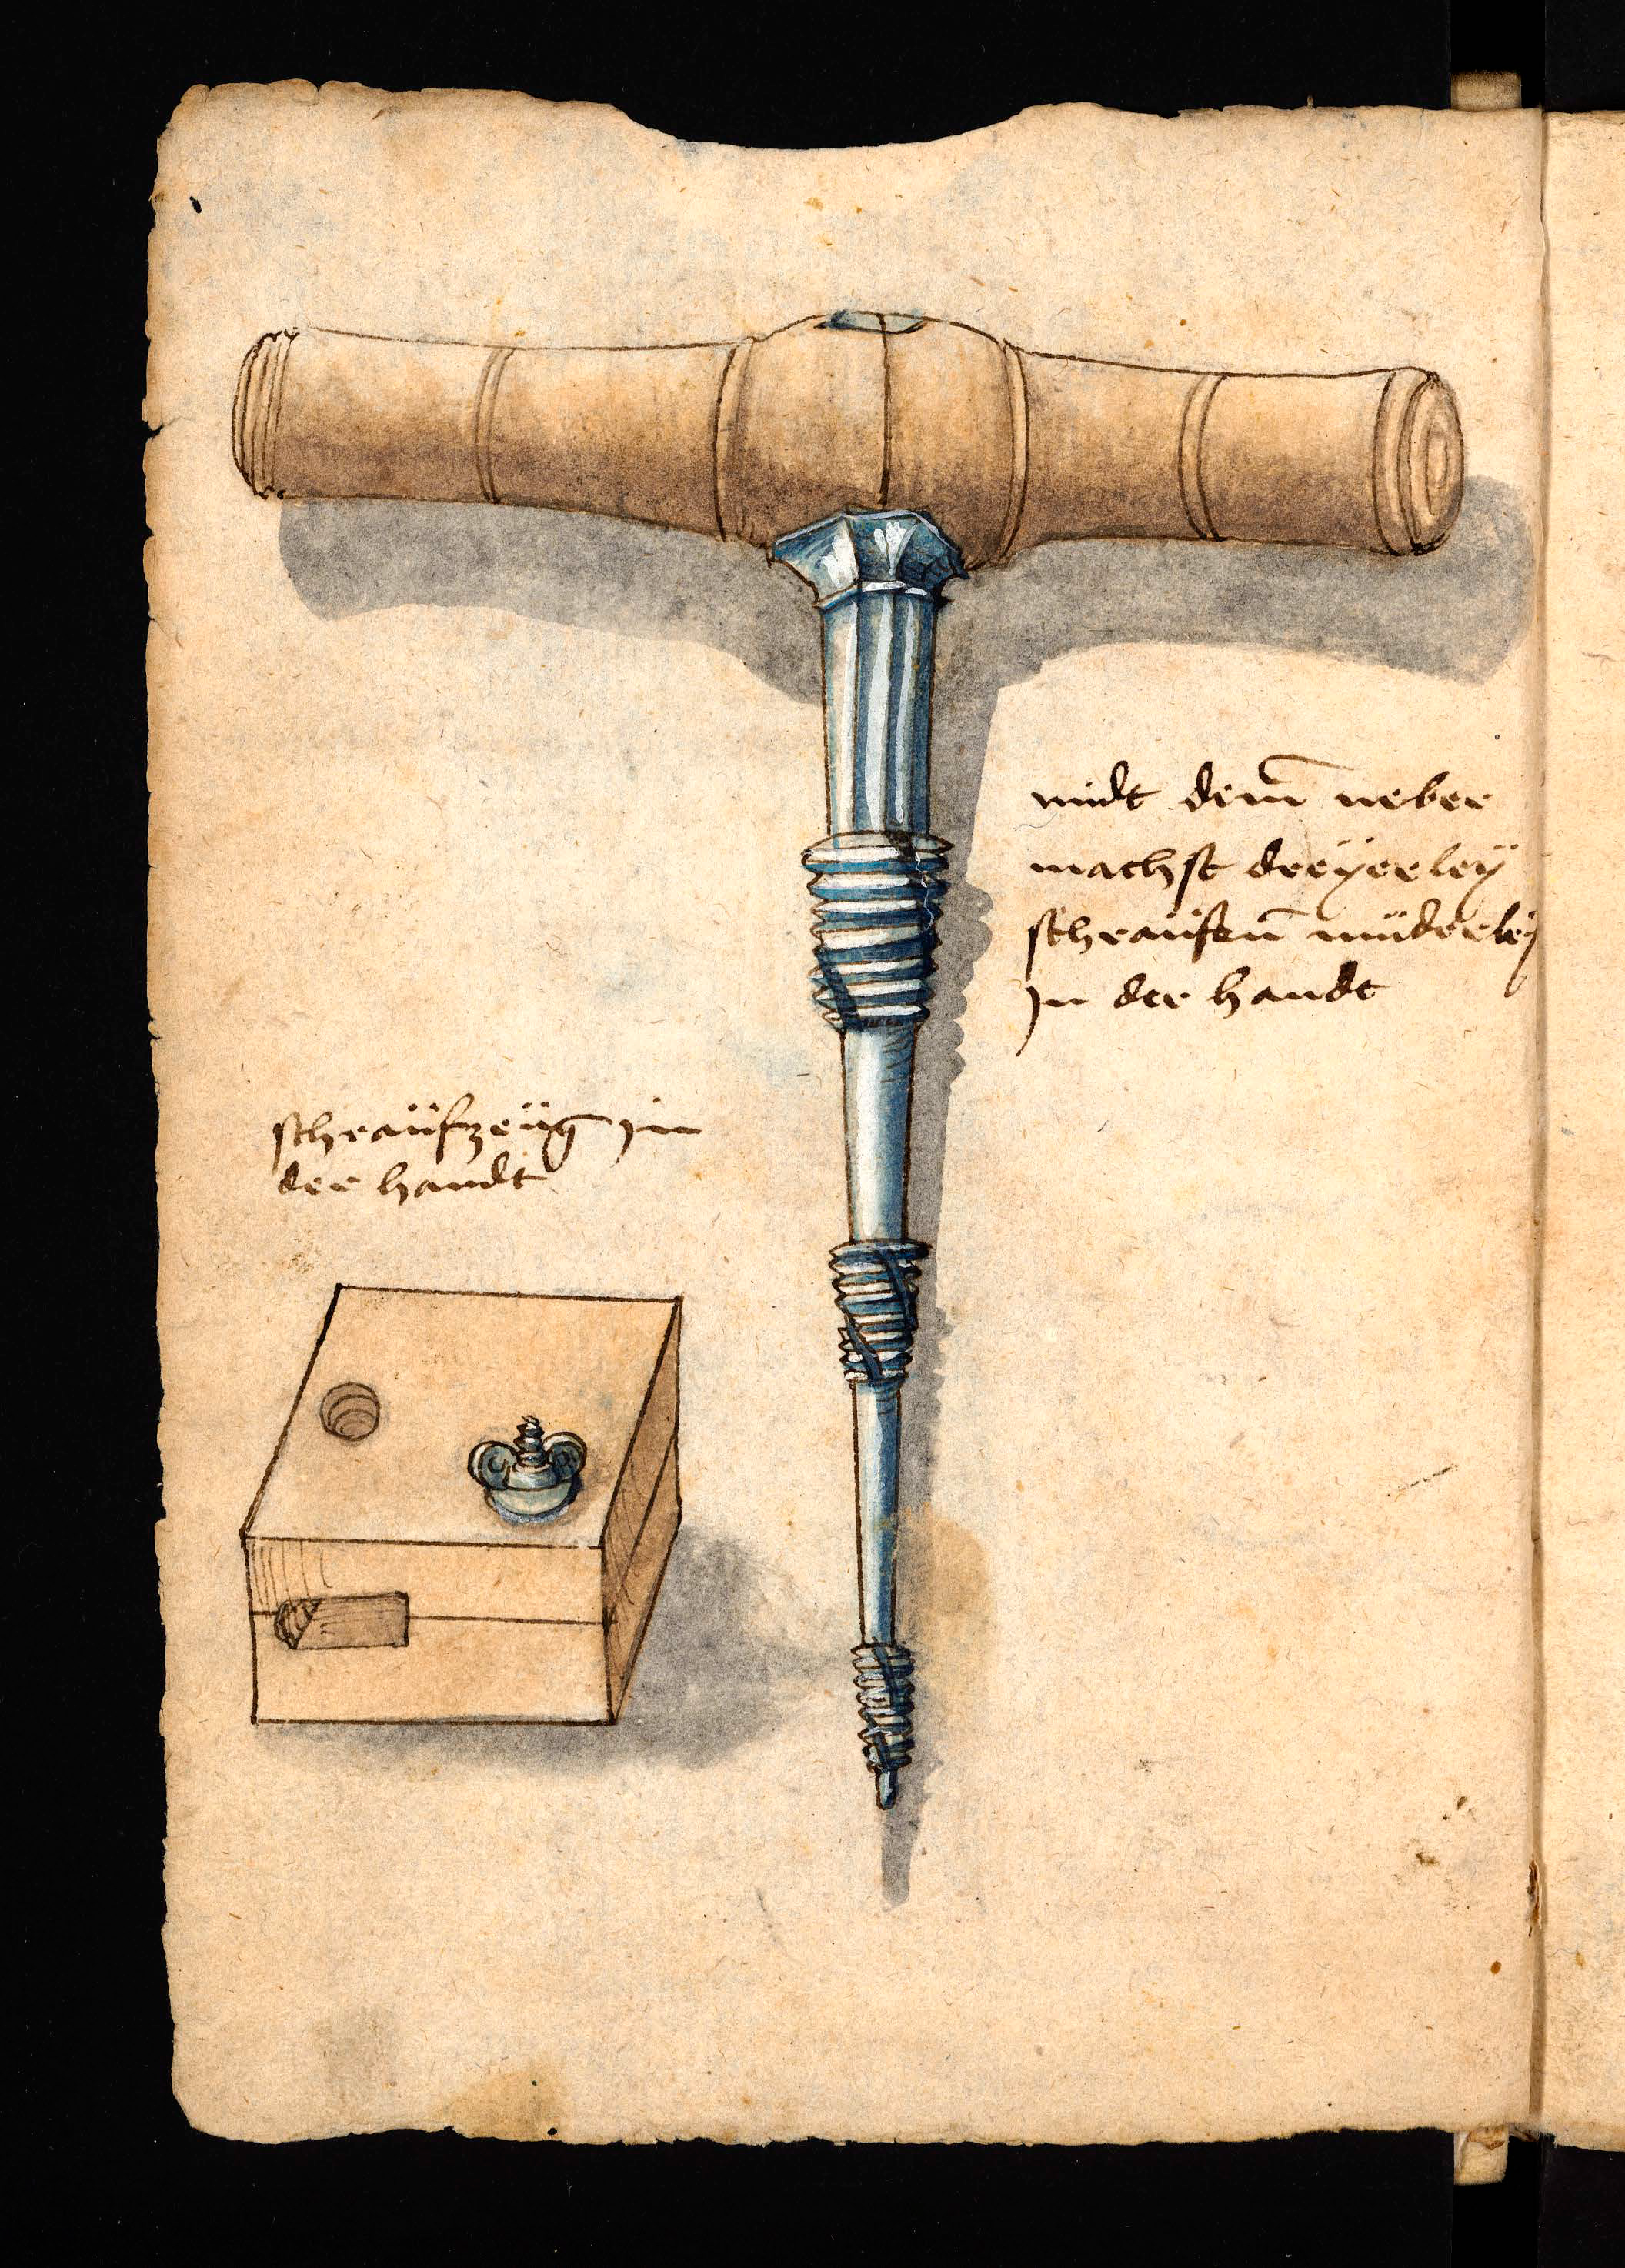 midt dem̄ neber
machst dreÿerleÿ
schraüfen̄ müderleÿ
jn der handt
schraüfzeüg jn
der handt